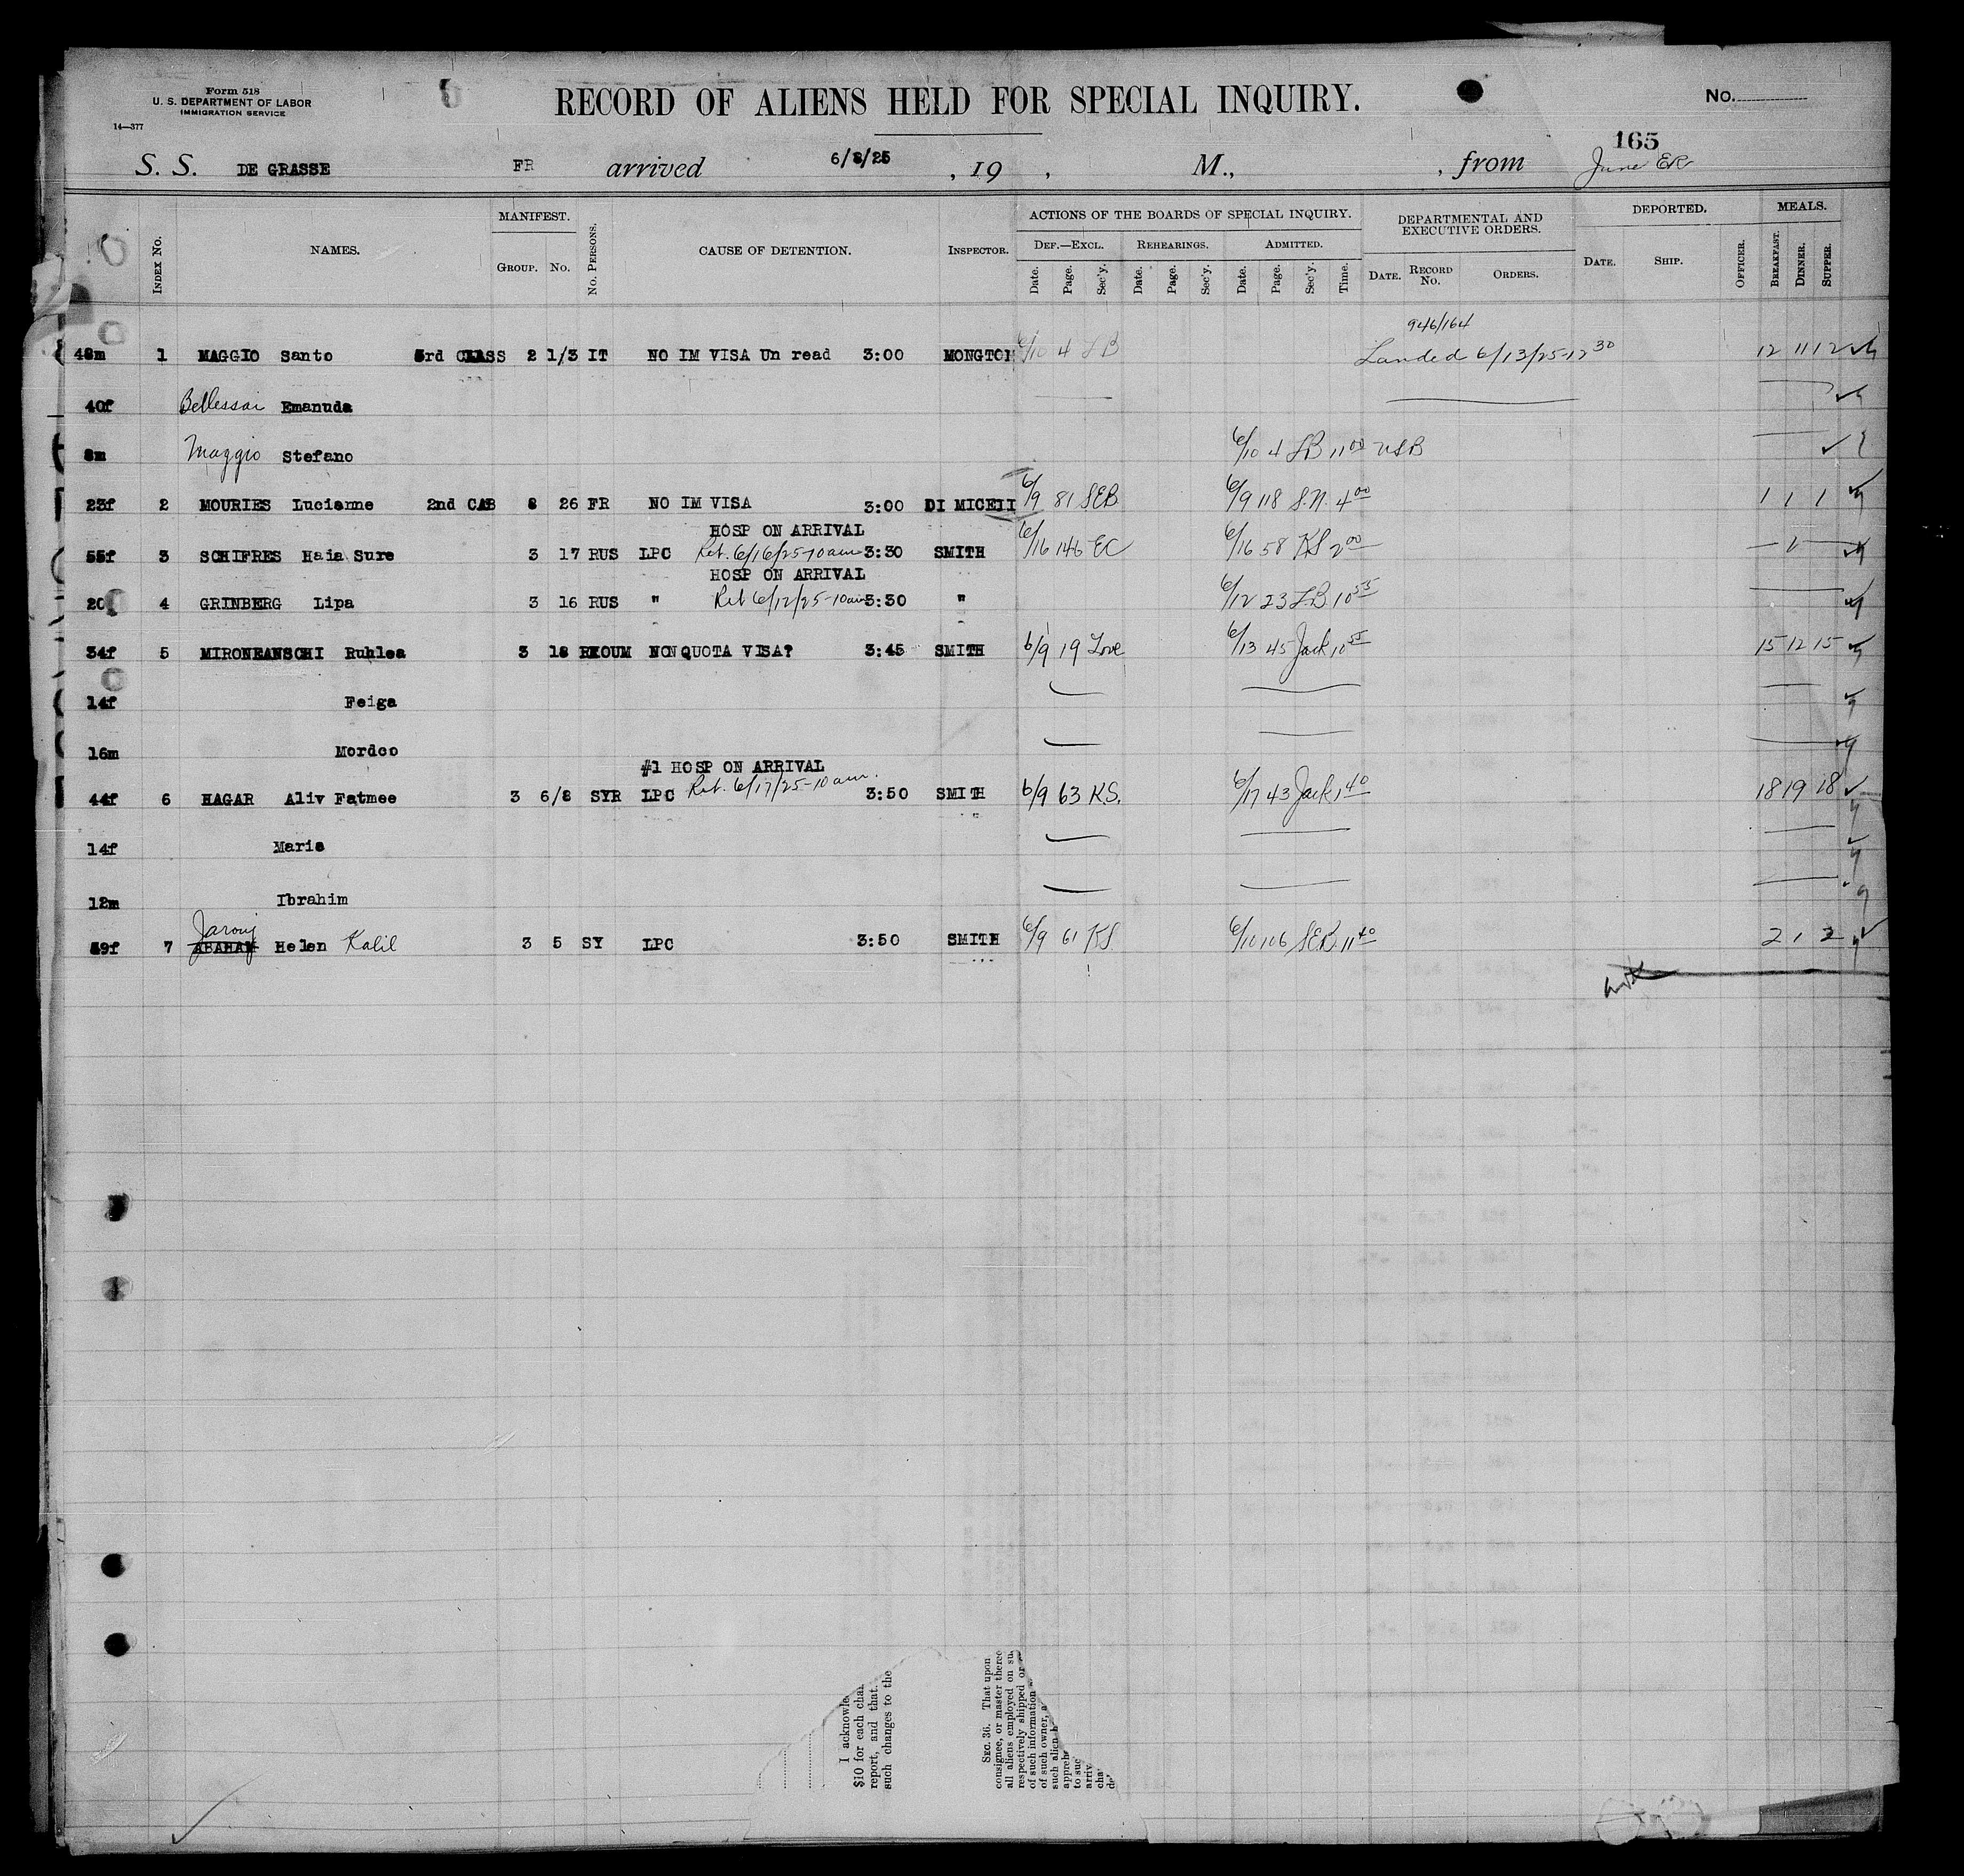 Form 518
U. S. DEPARTMENT OF LABOR
IMMIGRATION SERVICE
14—377
RECORD OF ALIENS HELD FOR SPECIAL INQUIRY.
No.
165
S. S. DE GRASSE FR arrived 6/8/25, 19 , M., , from June
INDEX No. NAMES. MANIFEST. GROUP. No. No. PERSONS. CAUSE OF DETENTION. INSPECTOR. ACTIONS OF THE BOARDS OF SPECIAL INQUIRY. DEF.—EXCL. Date. Page. Sec'y. REHEARINGS. Date. Page. Sec'y. ADMITTED. Date. Page. Sec'y. Time. DEPARTMENTAL AND EXECUTIVE ORDERS. DATE. RECORD No. ORDERS. DEPORTED. DATE. SHIP. OFFICER. MEALS. BREAKFAST. DINNER. SUPPER.
946/164
48m 1 MAGGIO Santo 3rd CLASS 2 1/3 IT NO IM VISA Un read 3:00 MONGTON 6/10 4 LB Landed 6/13/25-12 30 12 11 12
40f Emanuda
8m Maggio Stefano 6/10 4 LB 11 00
23f 2 MOURIES Lucienne 2nd CAB 8 26 FR NO IM VISA 3:00 DI MICELI 6/9 81 SEB 6/9 118 S.N. 4 00 1 1 1
HOSP ON ARRIVAL
55f 3 SCHIFRES Haia Sure 3 17 RUS LPC Ret. 6/16/25-10am 3:30 SMITH 6/16 146 EC 6/16 58 KS 2 00 1
HOSP ON ARRIVAL
20 4 GRINBERG Lipa 3 16 RUS " Ret 6/12/25-10am 3:30 " 6/12 23 LB 10 55
34f 5 MIRONEANSCHI Ruhlea 3 18 ROUM NONQUOTA VISA? 3:45 SMITH 6/9 19 Love 6/13 45 Jack 10 55 15 12 15
14f Feiga
16m Mordco
#1 HOSP ON ARRIVAL
44f 6 HAGAR Aliv Fatmee 3 6/8 SYR LPC Ret. 6/17/25-10am. 3:50 SMITH 6/9 63 K.S. 6/17 43 Jack 1 40 18 19 18
14f Marie
12m Ibrahim
59f 7 ABAHAM Helen Kalil 3 5 SY LPC 3:50 SMITH 6/9 61 KS 6/10 106 SEB 11 40 2 1 2
I acknowle
$10 for each cha
report, and that
such changes to the
SEC. 36. That upon
consignee, or master there
all aliens employed on su
respectively shipped or
of such information
of such owner, a
such alien
appreh
to suc
arriv
cha
de